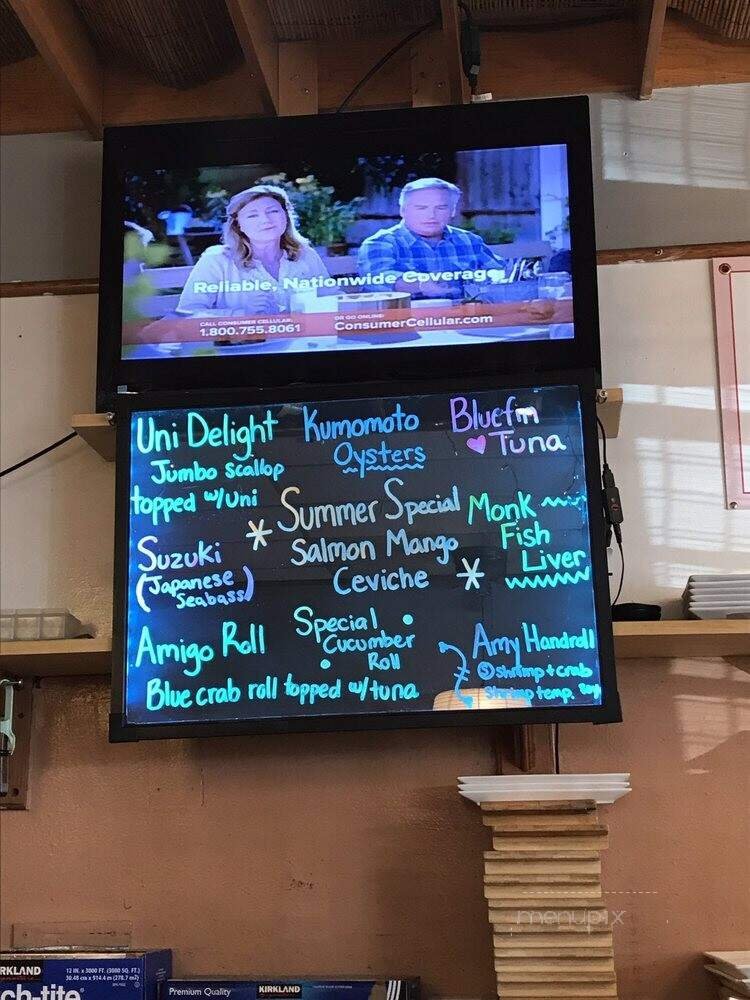 Reliable, Nationwide Coverage
CALL CONSUMER CELLULAR:
1.800.755.8061
OR GO ONLINE:
ConsumerCellular.com
Uni Delight
Jumbo scallop
topped w/uni
Kumomoto
Oysters
Bluefin
Tuna
Suzuki
(Japanese
Seabass)
* Summer Special
Salmon Mango
Ceviche *
Monk
Fish
Liver
Amigo Roll
Special
Cucumber
Roll
Blue crab roll topped w/tuna
Amy Handroll
S shrimp + crab
Shrimp temp.
RKLAND
12 IN. x 3000 FT. (3000 SQ. FT.)
30.48 cm x 914.4 m (278.7 m2)
ch-tite
Premium Quality
KIRKLAND
menupix